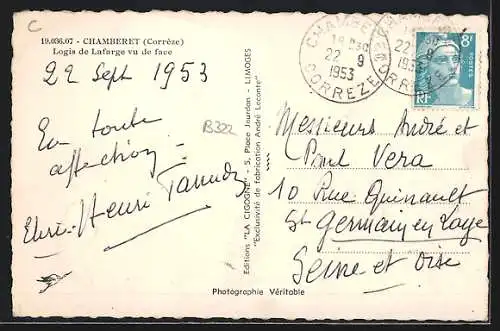 C
19.036.07 - CHAMBERET (Corrèze)
Logis de Lafarge vu de face
22 Sept 1953
En toute
affection
B322
Henri
Editions "LA CIGOGNE" - 5, Place Jourdan - LIMOGES
"Exclusivité de fabrication André Leconte"
CHAMBERET
22 9
1953
CORREZE
22
1953
CORREZE
8F
POSTES
RF
Messieurs André et
Paul Vera
10 Rue Quinault
St Germain en Laye
Seine et Oise
Photographie Véritable